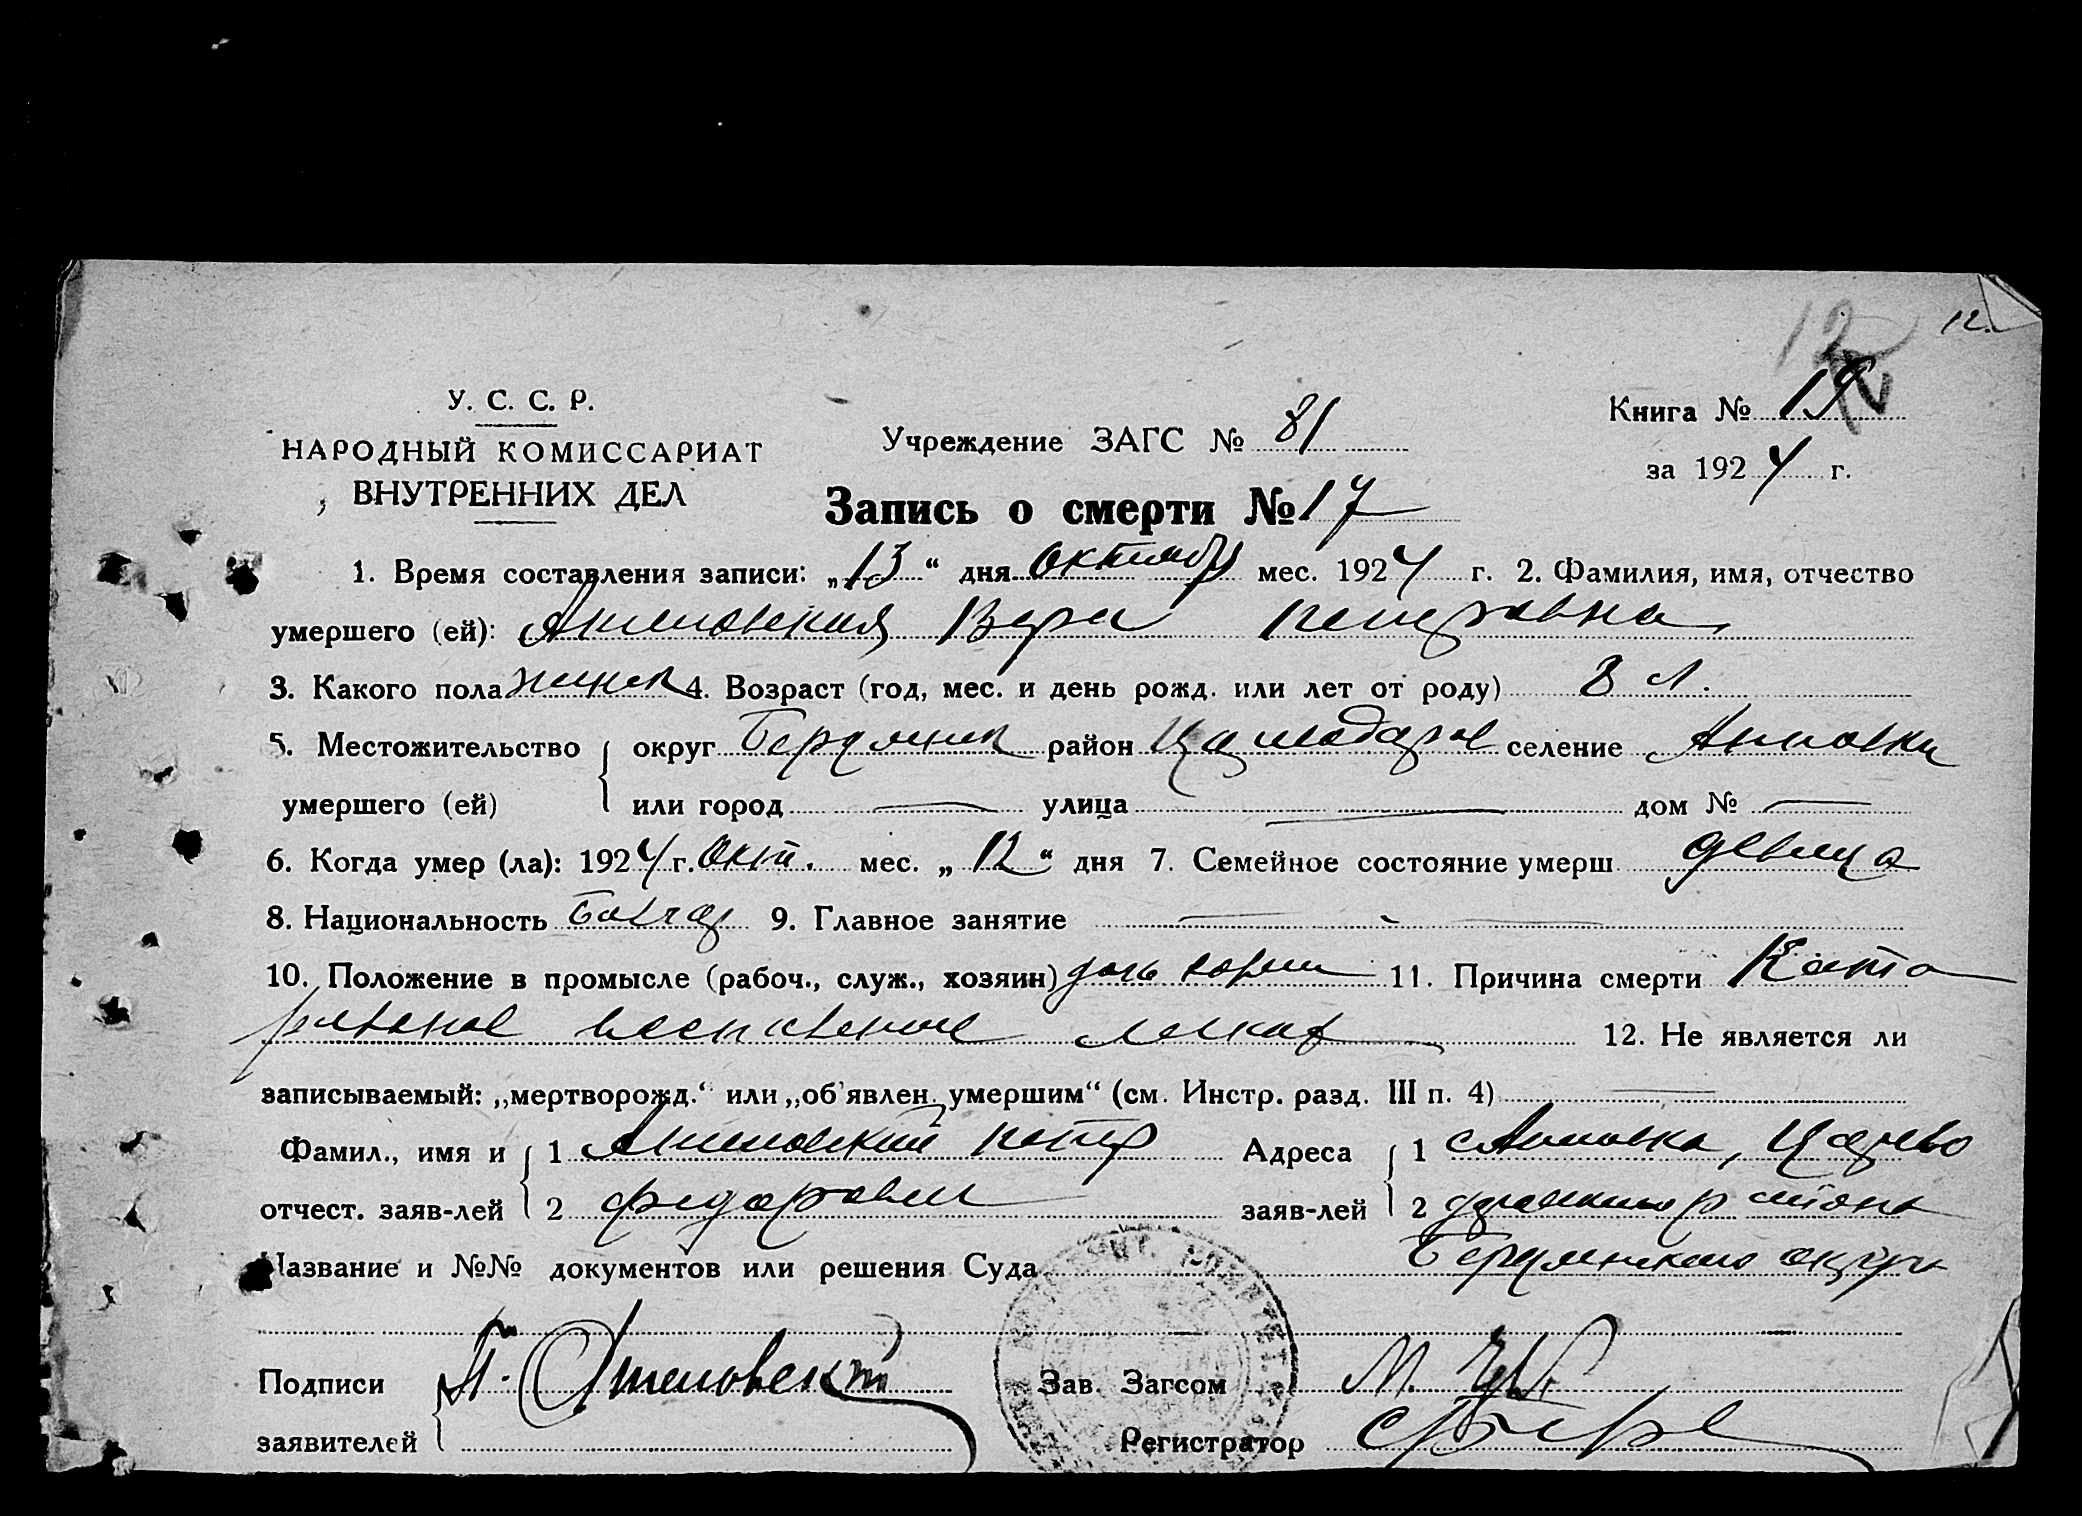 12
12.
У. С. С. Р.
НАРОДНЫЙ КОМИССАРИАТ
ВНУТРЕННИХ ДЕЛ
Учреждение ЗАГС № 81
Книга №
за 1924 г.
Запись о смерти № 17
1. Время составления записи: „13“ дня октября мес. 1924 г. 2. Фамилия, имя, отчество
умершего (ей): Вера Петровна
3. Какого пола женск 4. Возраст (год, мес. и день рожд. или лет от роду) 8 л.
5. Местожительство округ Бердянск район Цареводаров селение Анновки
умершего (ей) или город — улица — дом № —
6. Когда умер (ла): 1924 г. Окт. мес. „12“ дня 7. Семейное состояние умерш. девица
8. Национальность Болгар 9. Главное занятие — -
10. Положение в промысле (рабоч., служ., хозяин) дочь 11. Причина смерти Ката
ральное воспаление легких 12. Не является ли
записываемый: „мертворожд.“ или „об'явлен. умершим“ (см. Инстр. разд. III п. 4) —
Фамил., имя и 1 Петр Адреса 1 с Анновка, Царево
отчест. заяв-лей 2 Федорович заяв-лей 2 района
Название и №№ документов или решения Суда Бердянского округа
Подписи П. Зав. Загсом М.
заявителей Регистратор